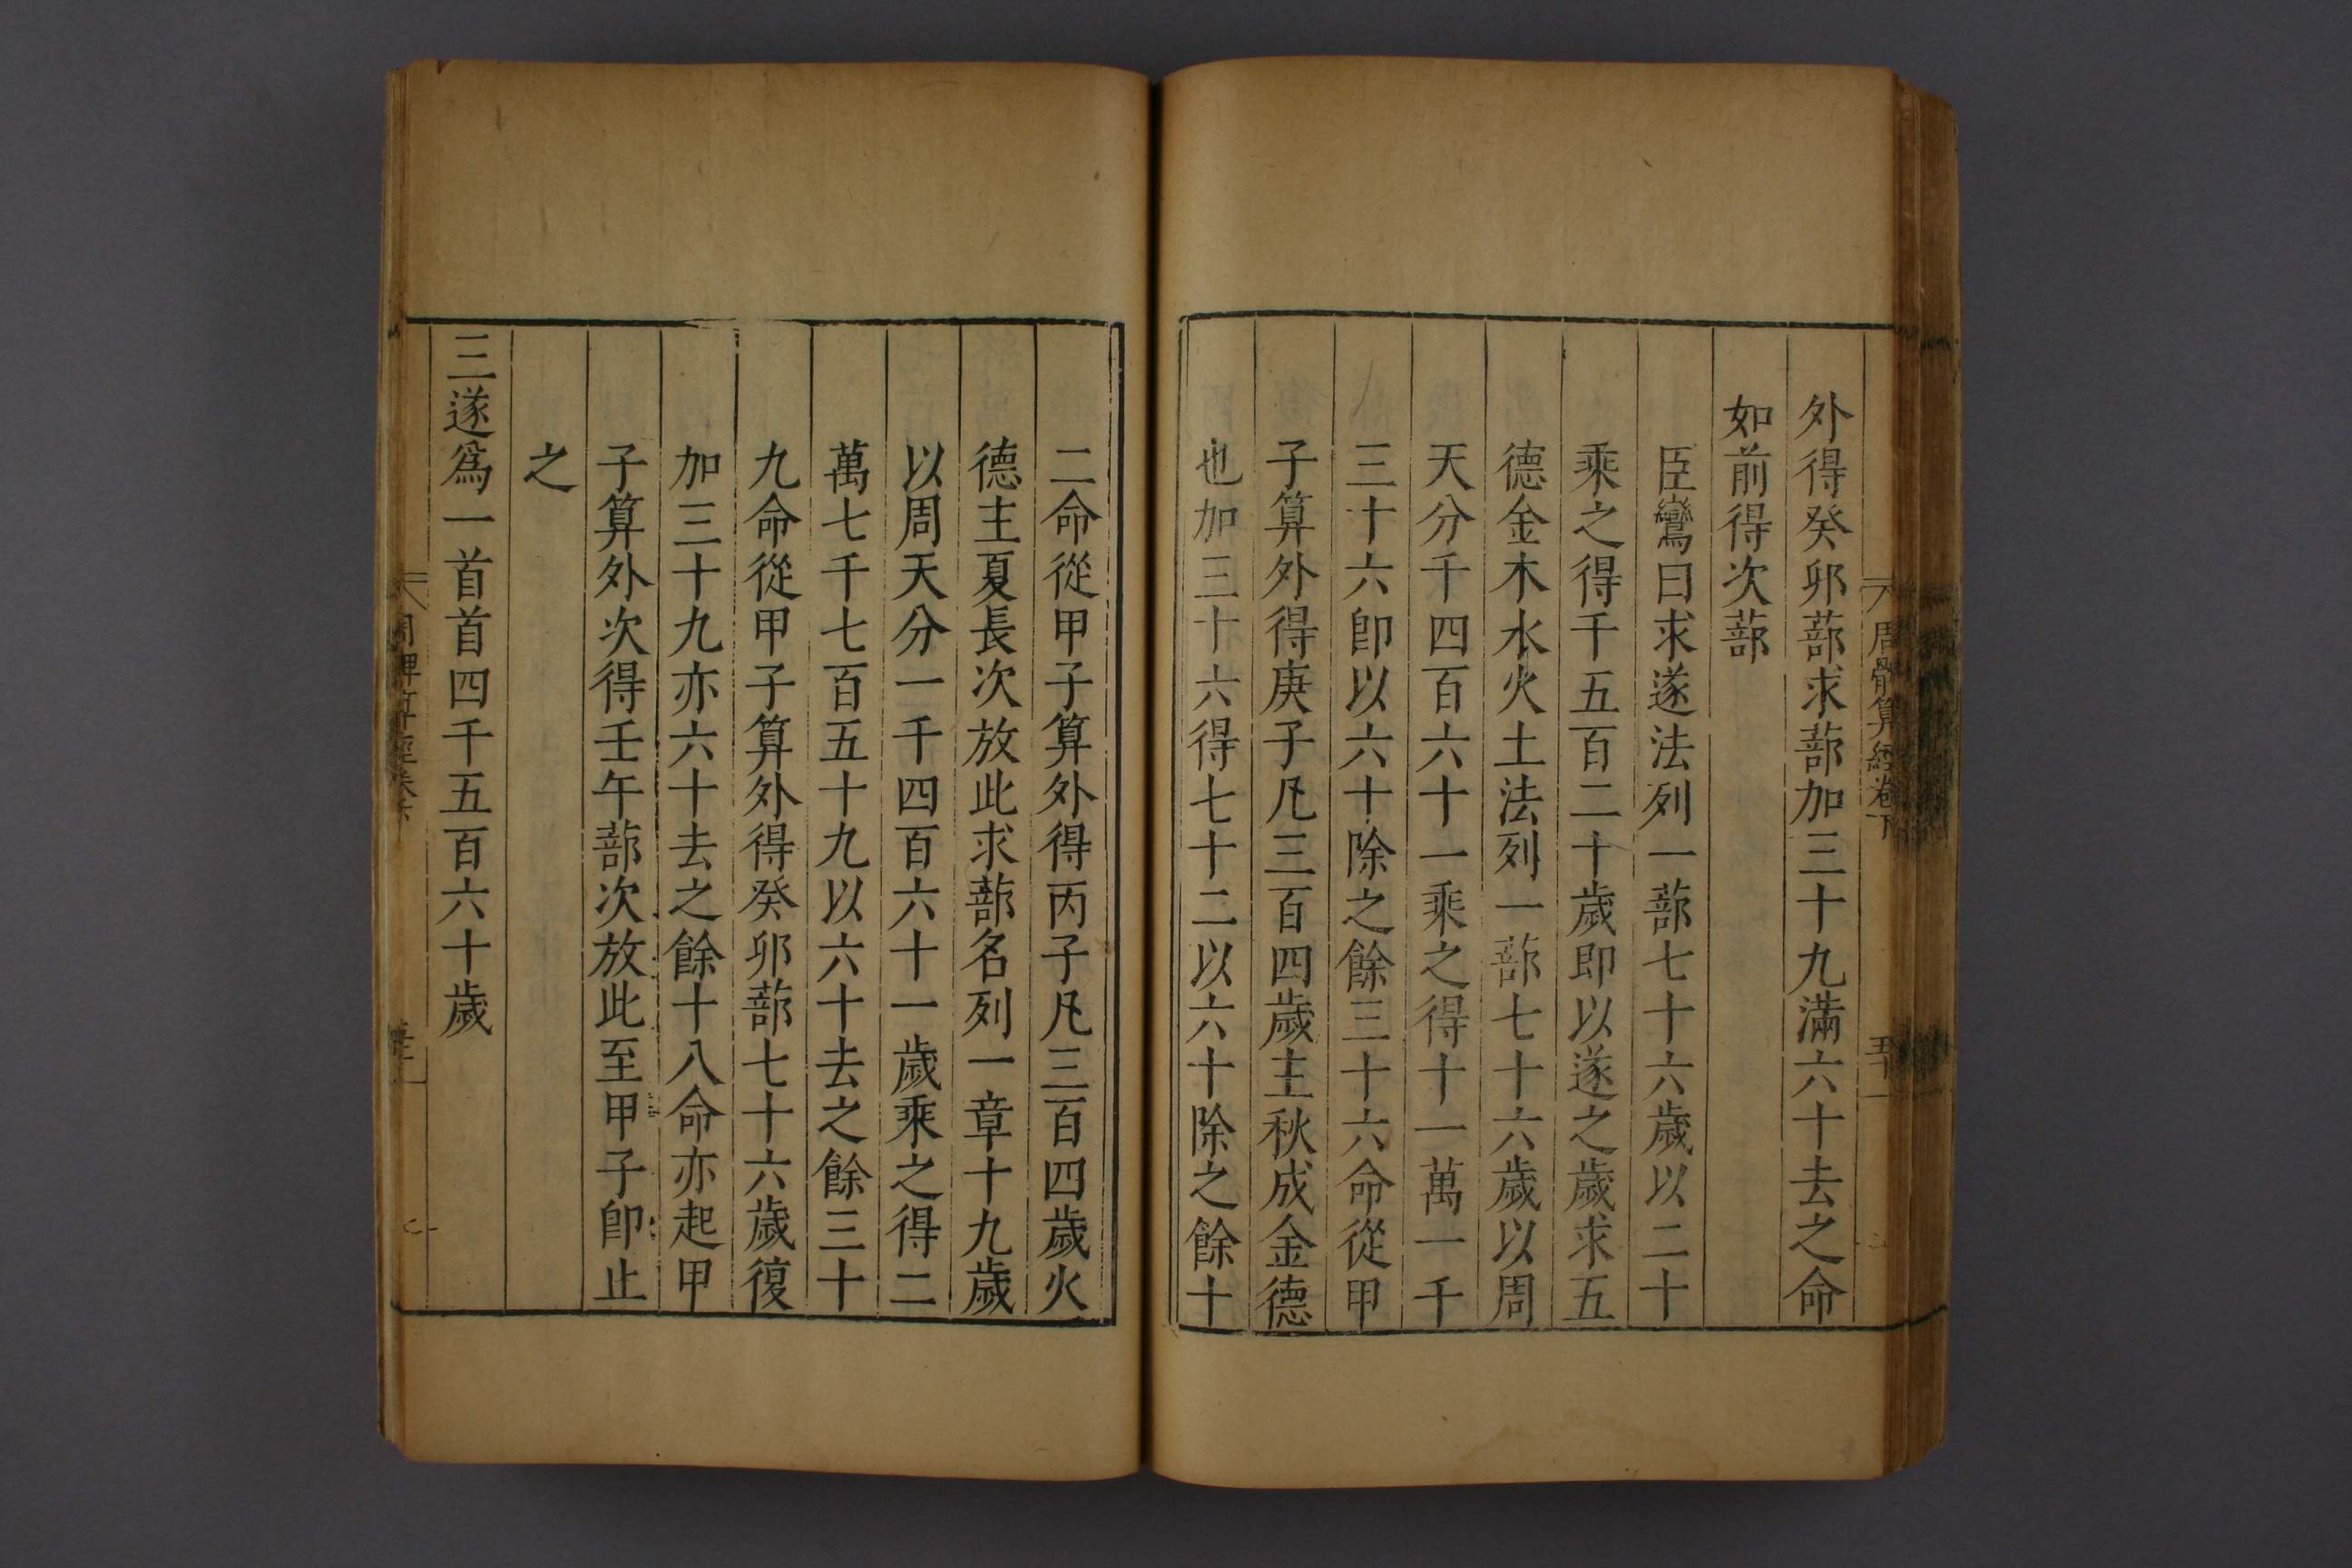 周髀算經卷下
五十一
外得癸卯蔀求蔀加三十九滿六十去之命
如前得次蔀
臣鸞曰求遂法列一蔀七十六歲以二十
乘之得千五百二十歲即以遂之歲求五
德金木水火土法列一蔀七十六歲以周
天分千四百六十一乘之得十一萬一千
三十六卽以六十除之餘三十六命從甲
子算外得庚子凡三百四歲主秋成金德
也加三十六得七十二以六十除之餘十
二命從甲子算外得丙子凡三百四歲火
德主夏長次放此求蔀名列一章十九歲
以周天分一千四百六十一歲乘之得二
萬七千七百五十九以六十去之餘三十
九命從甲子算外得癸卯蔀七十六歲復
加三十九亦六十去之餘十八命亦起甲
子算外次得壬午蔀次放此至甲子卽止
之
三遂爲一首首四千五百六十歲
周髀算經卷下